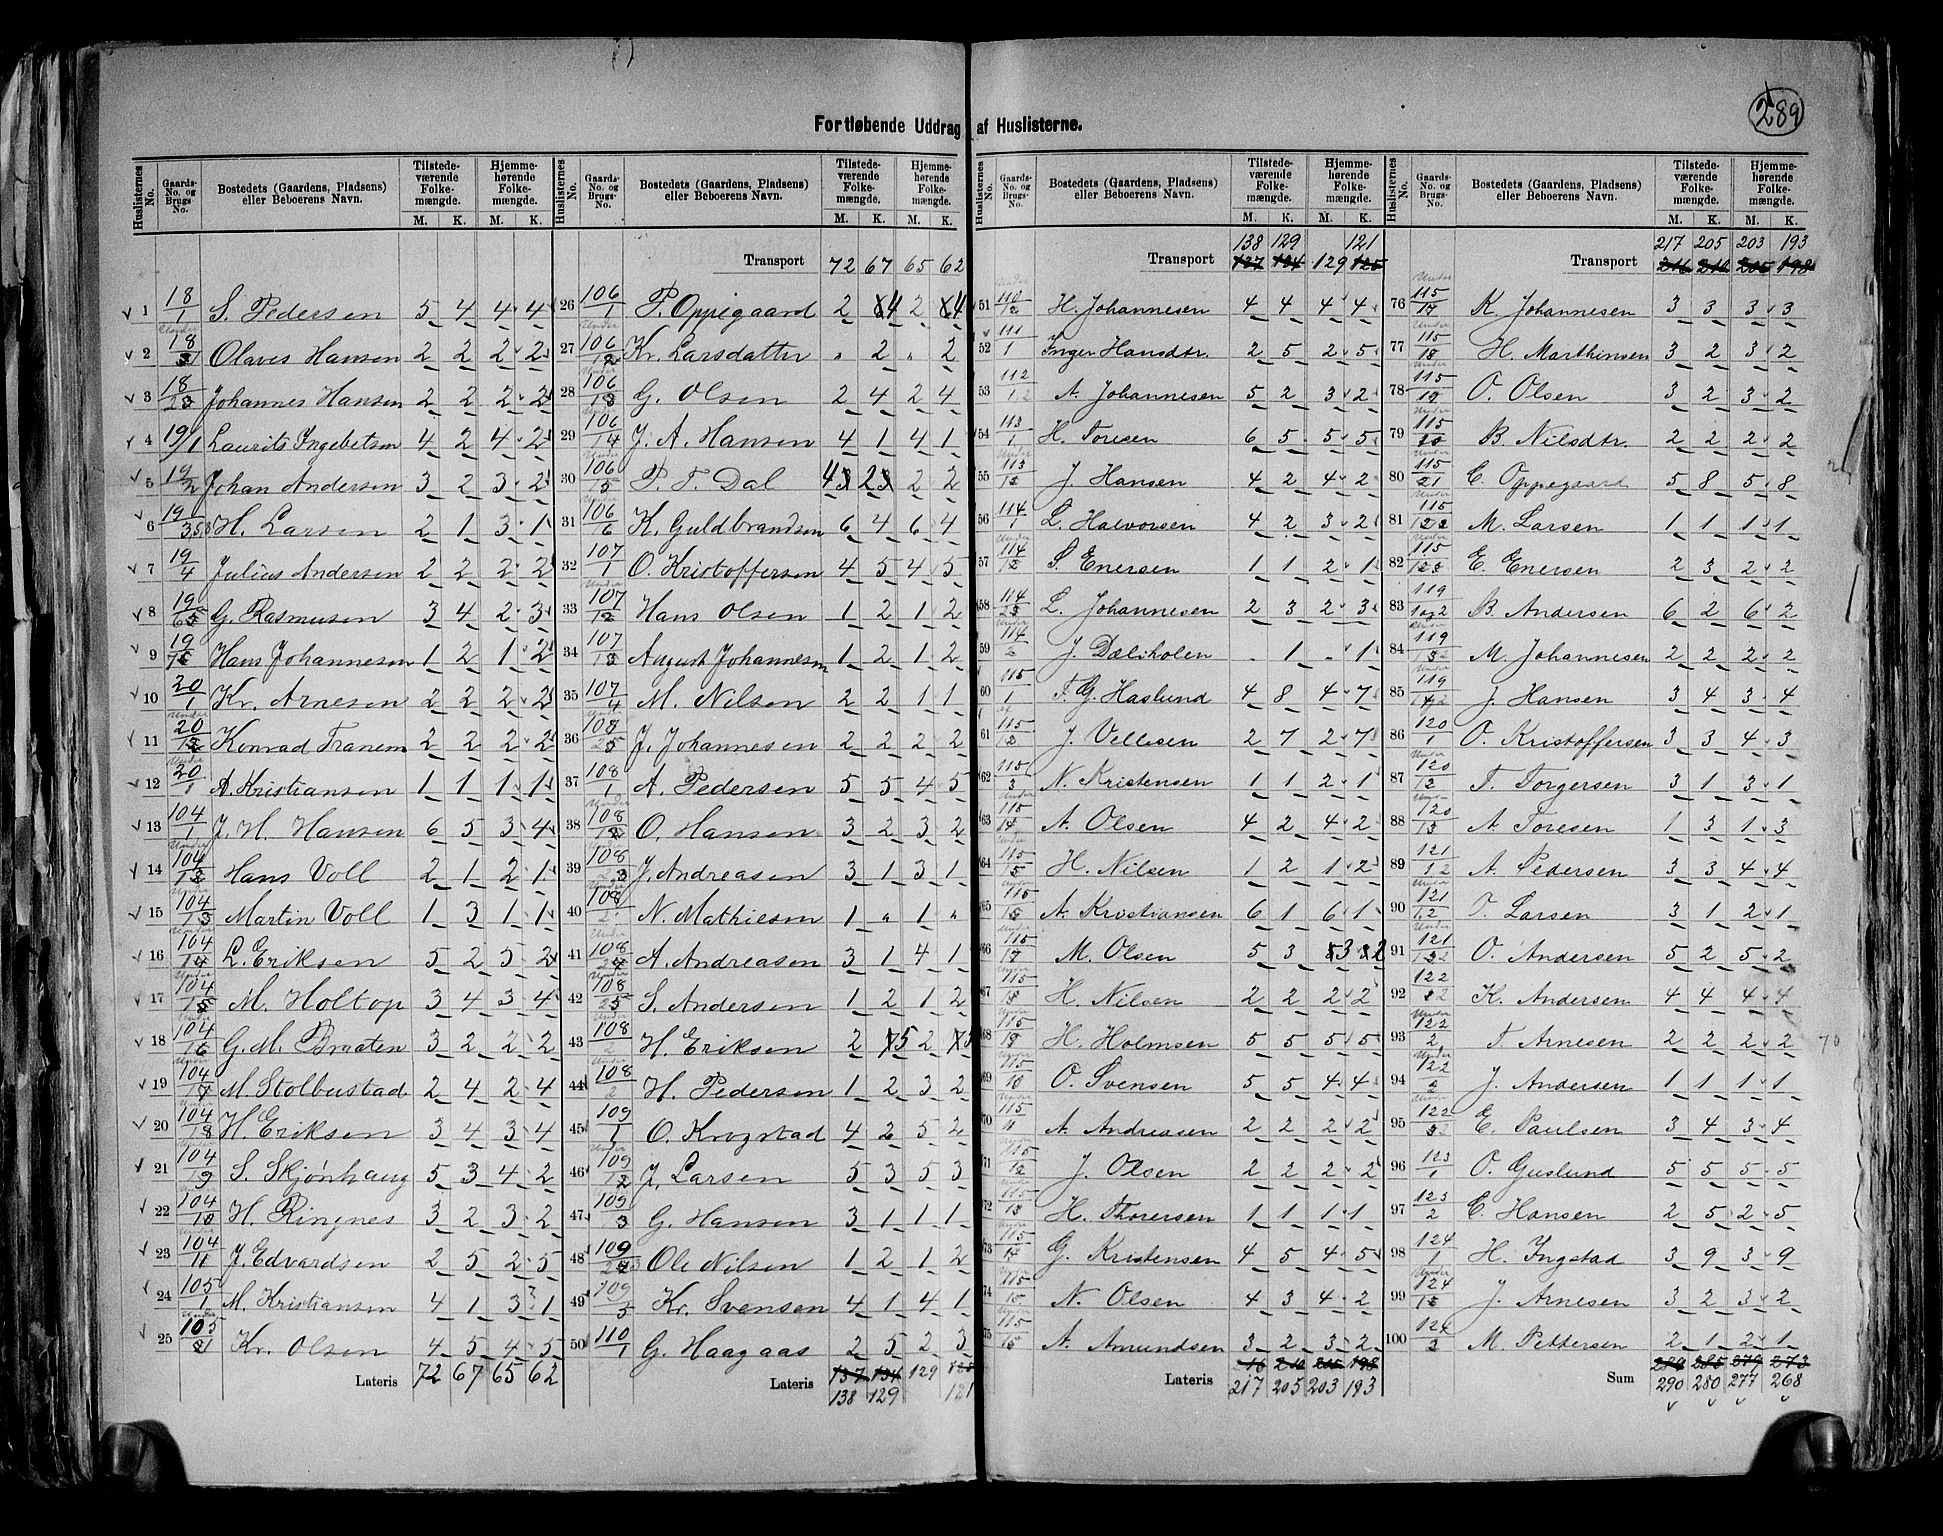 289
Fortløbende Uddrag af Huslisterne.
Huslisternes No. | Gaards-No. og Brugs-No. | Bostedets (Gaardens, Pladsens) eller Beboerens Navn. | Tilstedeværende Folkemængde. M. K. | Hjemmehørende Folkemængde. M. K.
1 18/1 S. Pedersen 5 4 4 4
2 Olaves Hansen 2 2 2 2
3 Johannes Hansen 2 2 2 2
4 19/1 Laurits Ingebetsen 4 2 4 2
5 19/2 Johan Andersen 3 2 3 2
6 H. Larsen 2 1 3 1
7 19/4 Julius Andersen 2 2 2 2
8 G. Rasmusen 3 4 2 3
9 Hans Johannesen 1 2 1 2
10 20/1 Kr. Arnesen 2 2 2 2
11 Konrad Tranem 2 2 2 2
12 A. Kristiansen 1 1 1 1
13 104/1 J. H. Hansen 6 5 3 4
14 Hans Voll 2 1 2 1
15 Martin Voll 1 3 1 1
16 L. Eriksen 5 2 5 2
17 M. Holtop 3 4 3 4
18 G. M. Braaten 3 2 2 2
19 M. Stolbustad 2 4 2 4
20 H. Eriksen 3 4 3 4
21 S. Skjønhaug 5 3 4 2
22 H. Ringnes 3 2 3 2
23 J. Edvardsen 2 5 2 5
24 105/1 M. Kristiansen 4 1 3 1
25 Kr. Olsen 4 5 4 5
Lateris 72 67 65 62
Transport 72 67 65 62
26 106/1 P. Oppegaard 2 4 2 4
27 Kr. Larsdatter " 2 " 2
28 G. Olsen 2 4 2 4
29 J. A. Hansen 4 1 4 1
30 P. T. Dal 4 2 2 2
31 106/6 K. Guldbrandsen 6 4 6 4
32 107/1 O. Kristoffersen 4 5 4 5
33 Hans Olsen 1 2 1 2
34 August Johannesen 1 2 1 2
35 107/4 M. Nilsen 2 2 1 1
36 J. Johannesen 2 2 2 2
37 108/1 A. Pedersen 5 5 4 5
38 O. Hansen 3 2 3 2
39 J. Andreasen 3 1 3 1
40 N. Mathiesen 1 " 1 "
41 A. Andreasen 3 1 4 1
42 S. Andersen 1 2 1 2
43 108/2 H. Eriksen 2 5 2 5
44 108/2 H. Pedersen 1 2 3 2
45 109/1 O. Krogstad 4 2 5 2
46 J. Larsen 5 3 5 3
47 109/3 G. Hansen 3 1 1 1
48 Ole Nilsen 1 2 1 2
49 Kr. Svensen 4 1 4 1
50 110/1 G. Haagaas 2 5 2 3
Lateris 137 134 129 125
138 129 121
138 129 121
Transport 137 134 129 125
51 H. Johannesen 4 4 4 4
52 111/1 Inger Hansdtr. 2 5 2 5
53 A. Johannesen 5 2 3 2
54 113/1 H. Toresen 6 5 5 5
55 J. Hansen 4 2 4 2
56 114/1 L. Halvorsen 4 2 3 2
57 S. Enersen 1 1 2 1
58 L. Johannesen 2 3 2 3
59 114/2 J. Dæliholen . 1 . 1
60 115/1 T. G. Haslund 4 8 4 7
61 J. Vellesen 2 7 2 7
62 115/3 N. Kristensen 1 1 2 1
63 A. Olsen 4 2 4 2
64 H. Nilsen 1 2 1 2
65 A. Kristiansen 6 1 6 1
66 M. Olsen 5 3 3 2
67 H. Nilsen 2 2 2 2
68 H. Holmsen 5 5 5 5
69 O. Svensen 5 5 4 4
70 A. Andreasen 2 2 2 2
71 J. Olsen 2 2 2 2
72 H. Thoresen 1 1 1 1
73 G. Kristensen 4 5 4 5
74 N. Olsen 4 3 4 2
75 A. Amundsen 3 2 3 2
Lateris 217 205 203 193
217 205 203 193
Transport
76 K. Johannesen 3 3 3 3
77 115/18 H. Marthinsen 3 2 3 2
78 O. Olsen 3 2 3 2
79 B. Nilsdtr. 2 2 2 2
80 115/21 E. Oppegaard 5 8 5 8
81 M. Larsen 1 1 1 1
82 E. Enersen 2 3 2 2
83 119/1og2 B. Andersen 6 2 6 2
84 M. Johannesen 2 2 2 2
85 J. Hansen 3 4 3 4
86 120/1 O. Kristoffersen 3 3 4 3
87 T. Torgersen 3 1 3 1
88 A. Toresen 1 3 1 3
89 A. Pedersen 3 3 4 4
90 O. Larsen 3 1 2 1
91 O. Andersen 5 2 5 2
92 K. Andersen 4 4 4 4
93 122/2 T. Arnesen 2 2 2 2
94 122/2 J. Andersen 1 1 1 1
95 E. Paulsen 3 4 3 4
96 123/1 O. Guslund 5 5 5 5
97 123/2 E. Hansen 2 5 2 5
98 124/1 H. Ingstad 3 9 3 9
99 J. Arnesen 3 2 3 2
100 M. Pettersen 2 1 2 1
Sum 289 285 279 273
290 280 277 268